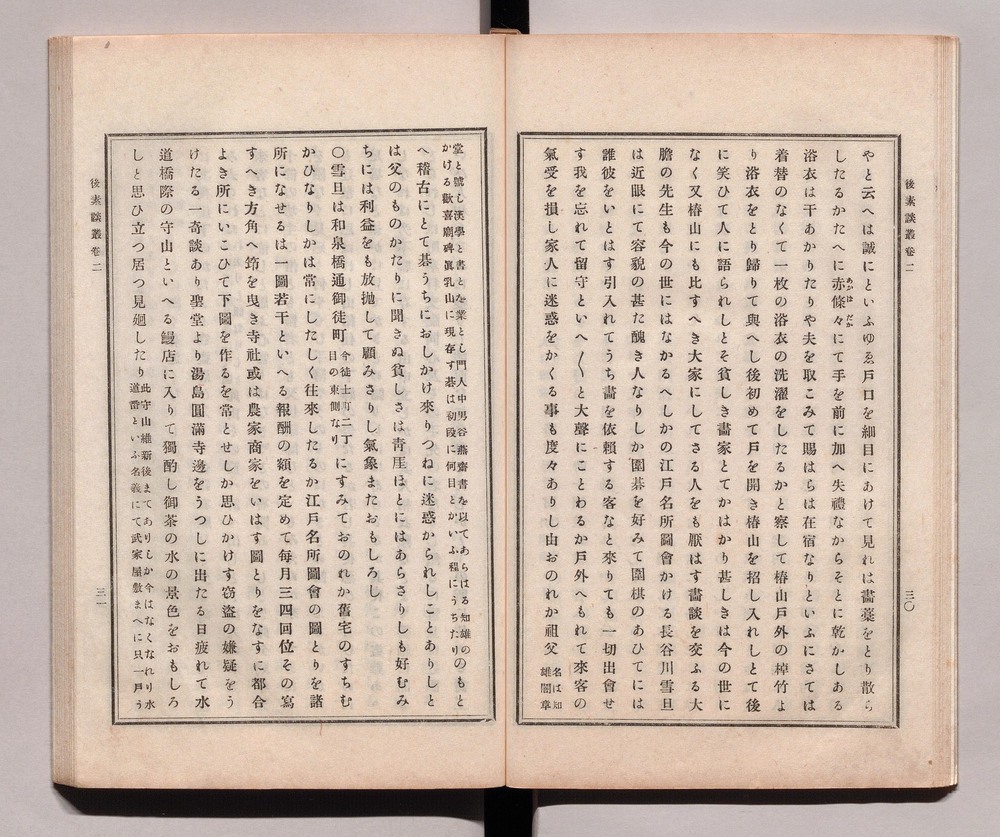 後素談叢卷二
三〇
やと云へは誠にといふゆゑ戸口を細目にあけて見れは畵藁をとり散ら
したるかたへに赤條々にて手を前に加へ失禮なからそとに乾かしある
あかはだか
浴衣は干あかりたりや夫を取こみて賜はらは在宿なりといふにさては
着替のなくて一枚の浴衣の洗濯をしたるかと察して椿山戸外の棹竹よ
り浴衣をとり歸りて與へし後初めて戸を開き椿山を招し入れしとて後
に笑ひて人に語られしとそ貧しき畵家とてかはかり甚しきは今の世に
なく又椿山にも比すへき大家にしてさる人をも厭はす畵談を交ふる大
膽の先生も今の世にはなかるへしかの江戸名所圖會かける長谷川雪旦
は近眼にて容貌の甚た醜き人なりしか圍碁を好みて圍棋のあひてには
誰彼をいとはす引入れてうち畵を依頼する客なと來りても一切出會せ
す我を忘れて留守といへ〱と大聲にことわるか戸外へもれて來客の
氣受を損し家人に迷惑をかくる事も度々ありし由おのれか祖父
名は知
雄閣章
堂と號し漢學と書とを業とし門人中男谷燕齋書を以てあらはる知雄の
かける歡喜廟碑眞乳山に現存す碁は初段に何目とかいふ程にうちたり
のもと
へ稽古にとて碁うちにおしかけ來りつねに迷惑かられしことありしと
は父のものかたりに聞きぬ貧しさは靑厓ほとにはあらさりしも好むみ
ちには利益をも放抛して顧みさりし氣象またおもしろし
〇雪旦は和泉橋通御徒町
今徒士町二丁
目の東側なり
にすみておのれか舊宅のすちむ
かひなりしかは常にしたしく往來したるか江戸名所圖會の圖とりを諸
所になせるは一圖若干といへる報酬の額を定めて每月三四回位その寫
すへき方角へ筇を曳き寺社或は農家商家をいはす圖とりをなすに都合
よき所にいこひて下圖を作るを常とせしか思ひかけす窃盜の嫌疑をう
けたる一奇談あり聖堂より湯島圓滿寺邊をうつしに出たる日疲れて水
道橋際の守山といへる鰻店に入りて獨酌し御茶の水の景色をおもしろ
しと思ひ立つ居つ見廻したり
此守山維新後まてありしか今はなくなれり水
道番といふ名義にて武家屋敷まへに只一戸う
後素談叢卷二
三一